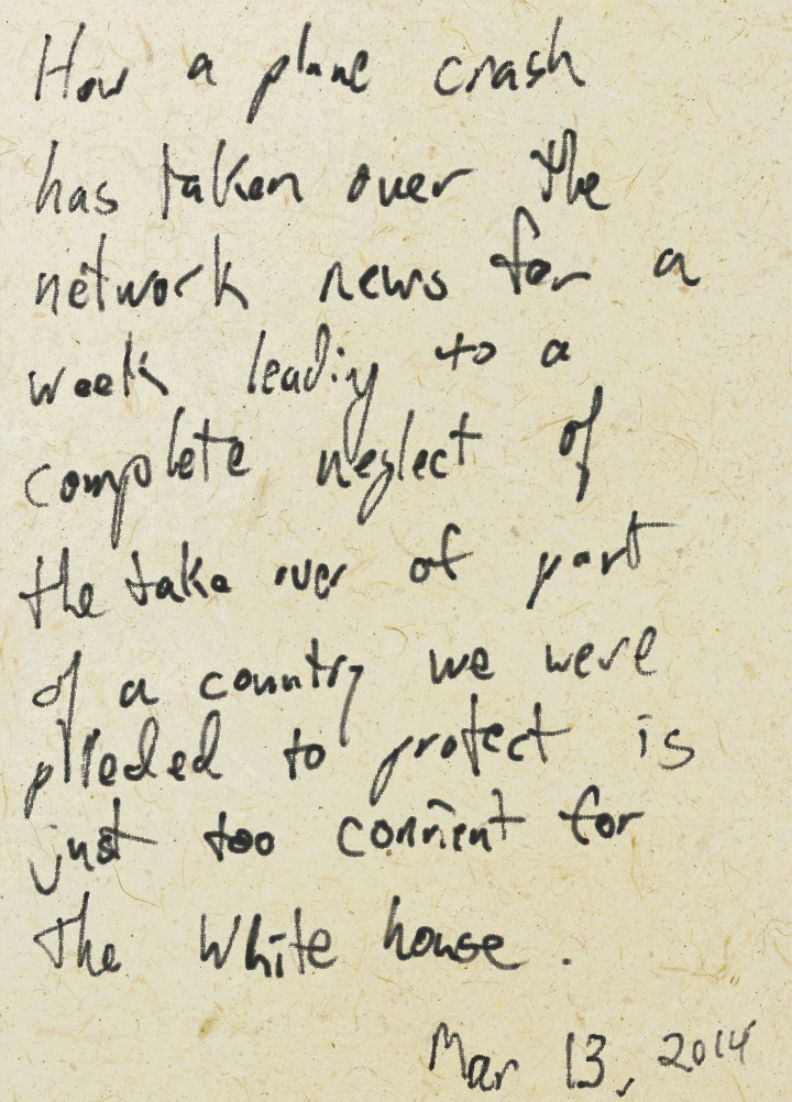 How a plane crash
has taken over the
network news for a
week leading to a
complete neglect of
the take over of part
of a country we were
plieded to protect is
just too connient for
the White house.
Mar 13, 2014